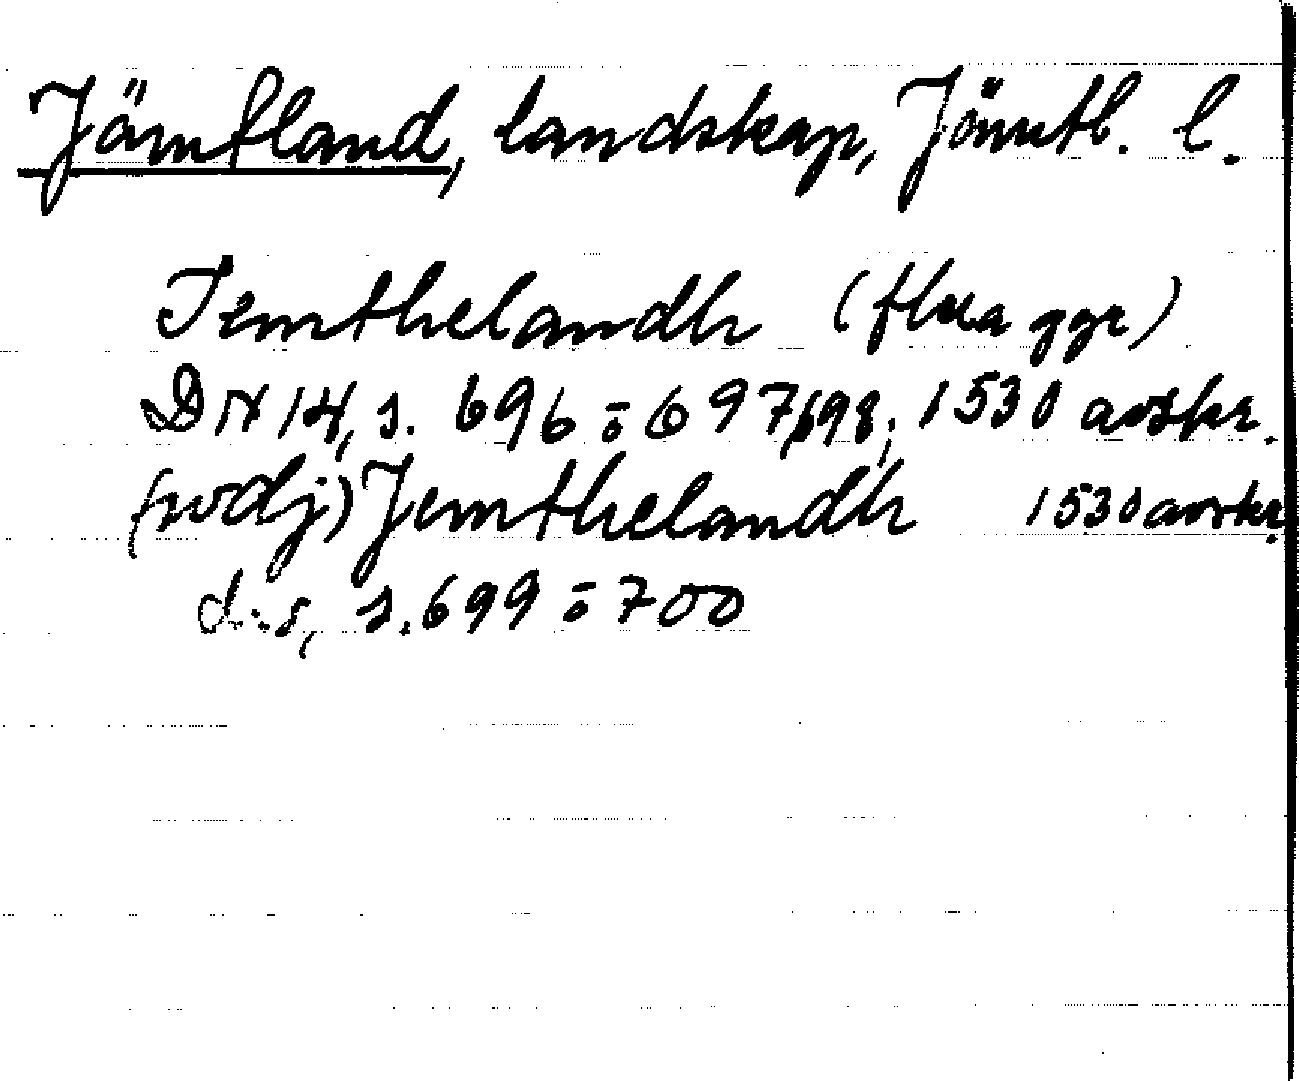 Jämtland, landskap, Jämtl. l.
Iemthelandh (flera ggr)
DN 14, s. 696 o 697, 698, 1530 avskr.
(wdj) Jemthelandh 1530 avskr.
d:s, s. 699 o 700